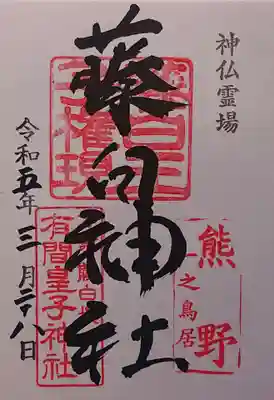 神仏霊場
藤白神社
藤白王子権現
熊野
一之鳥居
有間皇子神社
令和五年三月二十八日